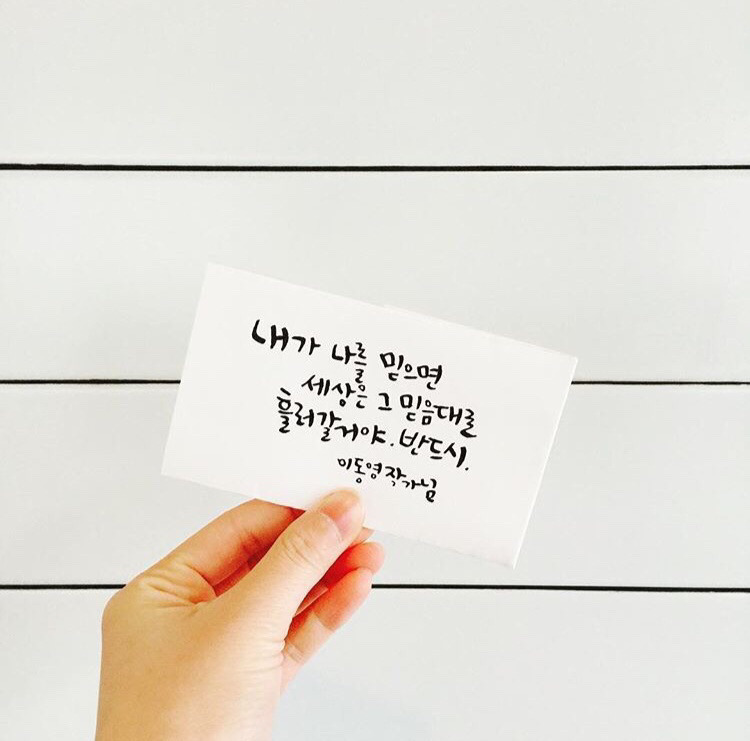 내가 나를 믿으면
세상은 그 믿음대로
흘러갈거야. 반드시.
이동영작가님